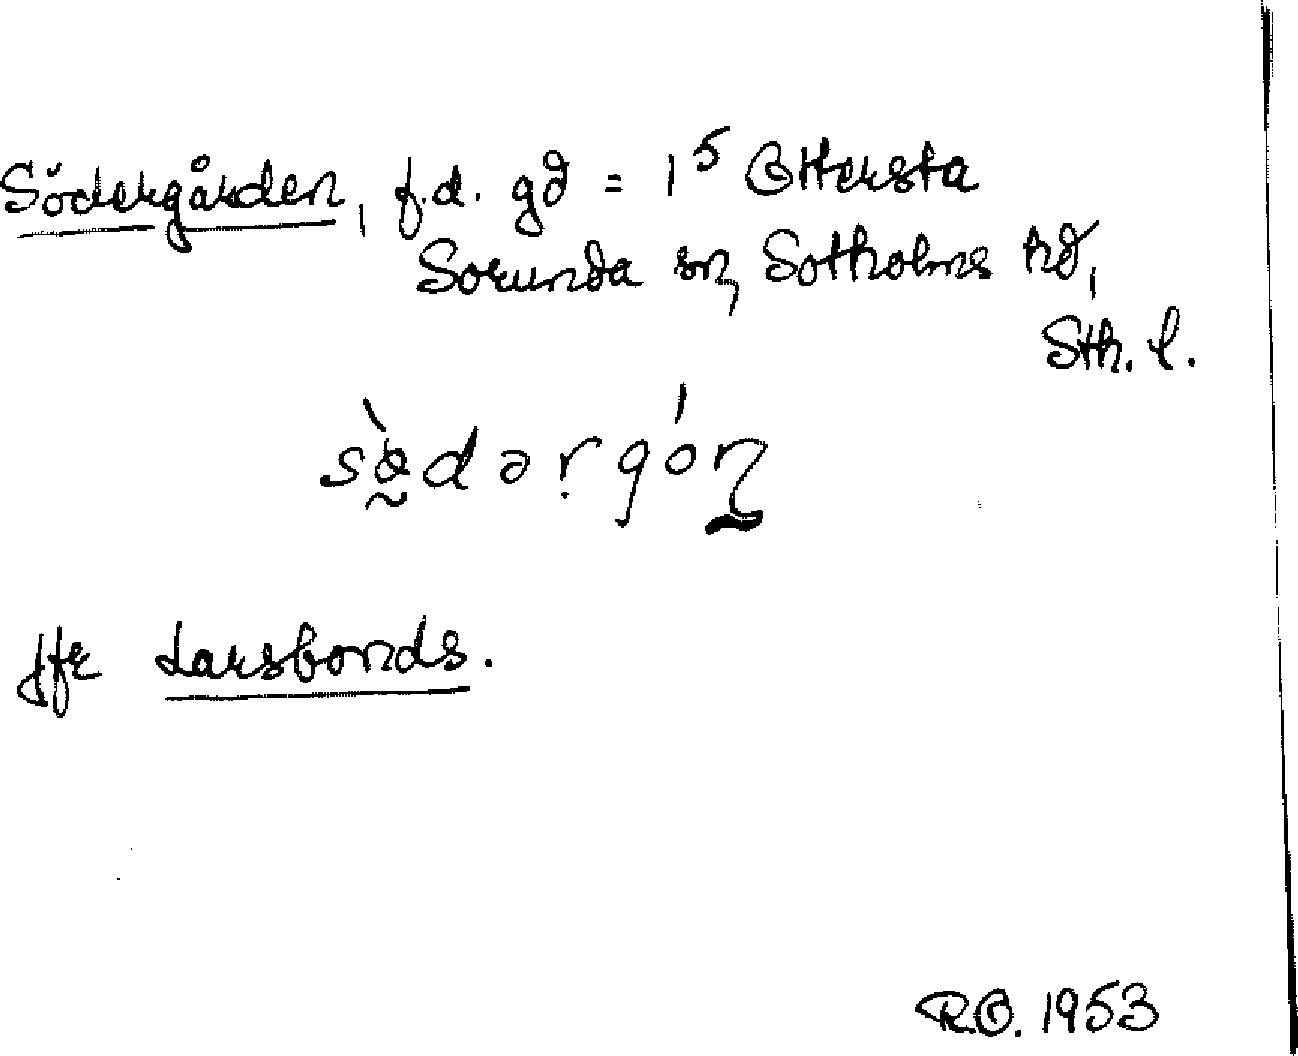 Södergården, f.d. gd = 1⁵ Ottersta
Sorunda sn, Sotholms hd,
Sth. l.
Jfr Larsbonds.
R.O. 1953